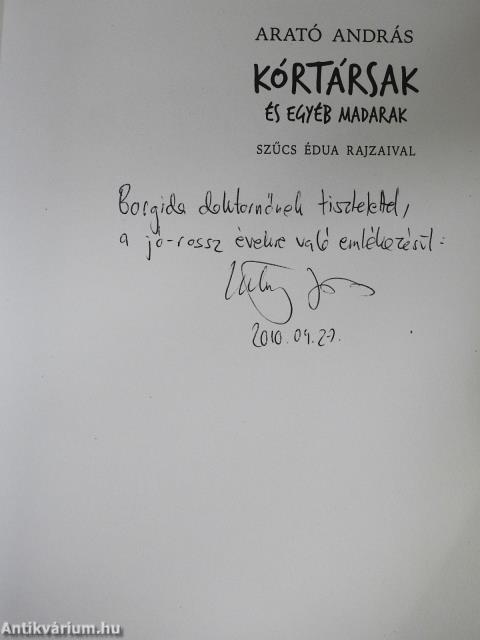 ARATÓ ANDRÁS
KÓRTÁRSAK
ÉS EGYÉB MADARAK
SZŰCS ÉDUA RAJZAIVAL
Borgida doktornőnek tisztelettel,
a jó-rossz évekre való emlékezésül:
2010.04.27.
Antikvárium.hu